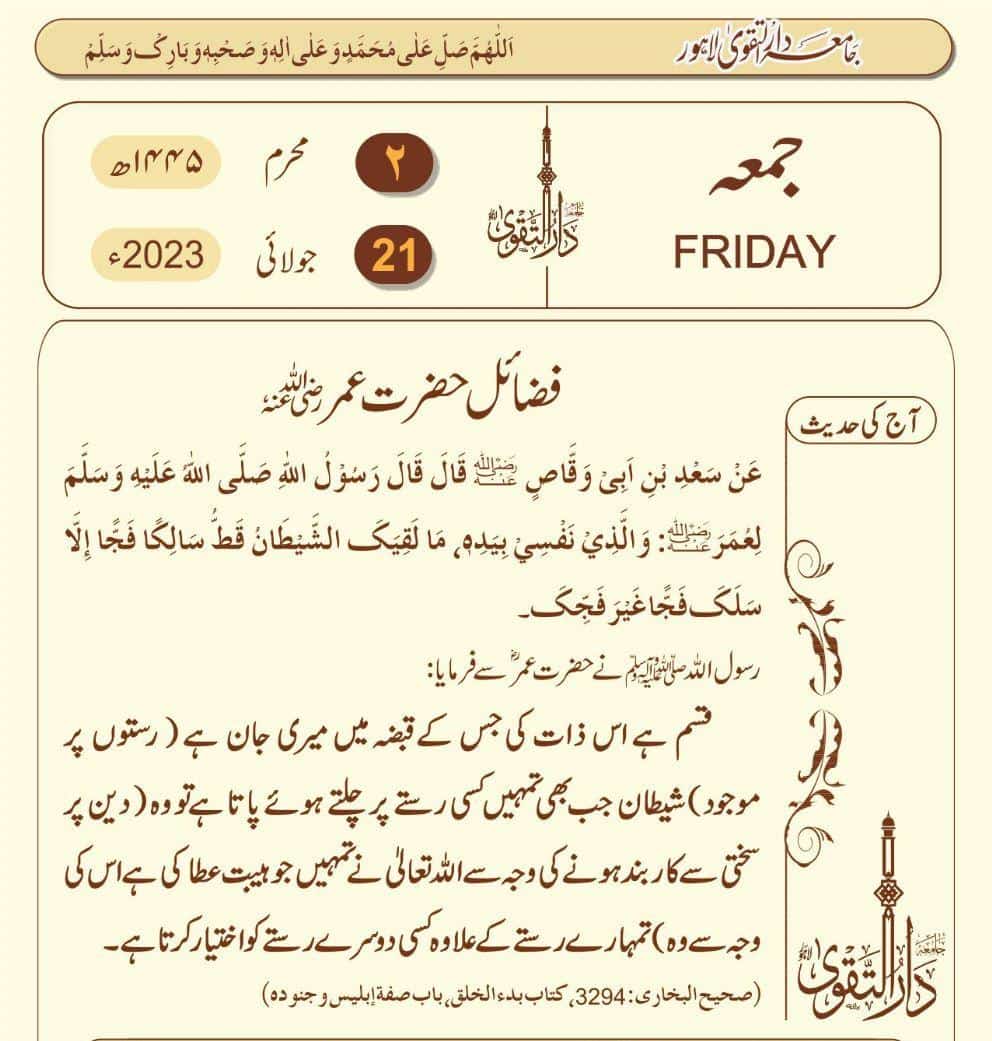 جامعہ دارالتقویٰ لاہور
اَللّٰهُمَّ صَلِّ عَلٰى مُحَمَّدٍ وَعَلٰى اٰلِهٖ وَ صَحْبِهٖ وَبَارِكْ وَسَلِّمْ
جمعہ
FRIDAY
جامعہ دارُالتَّقویٰ لاہور
۲ محرم ۱۴۴۵ھ
21 جولائی 2023ء
آج کی حدیث
فضائل حضرت عمر رضی اللہ عنہ
عَنْ سَعْدِ بْنِ اَبِیْ وَقَّاصٍ رضی اللہ عنہ قَالَ قَالَ رَسُوْلُ اللهِ صَلَّى اللهُ عَلَيْهِ وَسَلَّمَ
لِعُمَرَ رضی اللہ عنہ: وَالَّذِيْ نَفْسِيْ بِيَدِهٖ، مَا لَقِيَکَ الشَّيْطَانُ قَطُّ سَالِكًا فَجًّا إِلَّا
سَلَکَ فَجًّا غَيْرَ فَجِّکَ۔
رسول اللہ ﷺ نے حضرت عمرؓ سے فرمایا:
قسم ہے اس ذات کی جس کے قبضہ میں میری جان ہے (رستوں پر
موجود) شیطان جب بھی تمہیں کسی رستے پر چلتے ہوئے پاتا ہے تو وہ (دین پر
سختی سے کاربند ہونے کی وجہ سے اللہ تعالیٰ نے تمہیں جو ہیبت عطا کی ہے اس کی
وجہ سے وہ) تمہارے رستے کے علاوہ کسی دوسرے رستے کو اختیار کرتا ہے۔
(صحیح البخاری: 3294، کتاب بدء الخلق، باب صفة إبليس و جنوده)
جامعہ دارُالتَّقویٰ لاہور